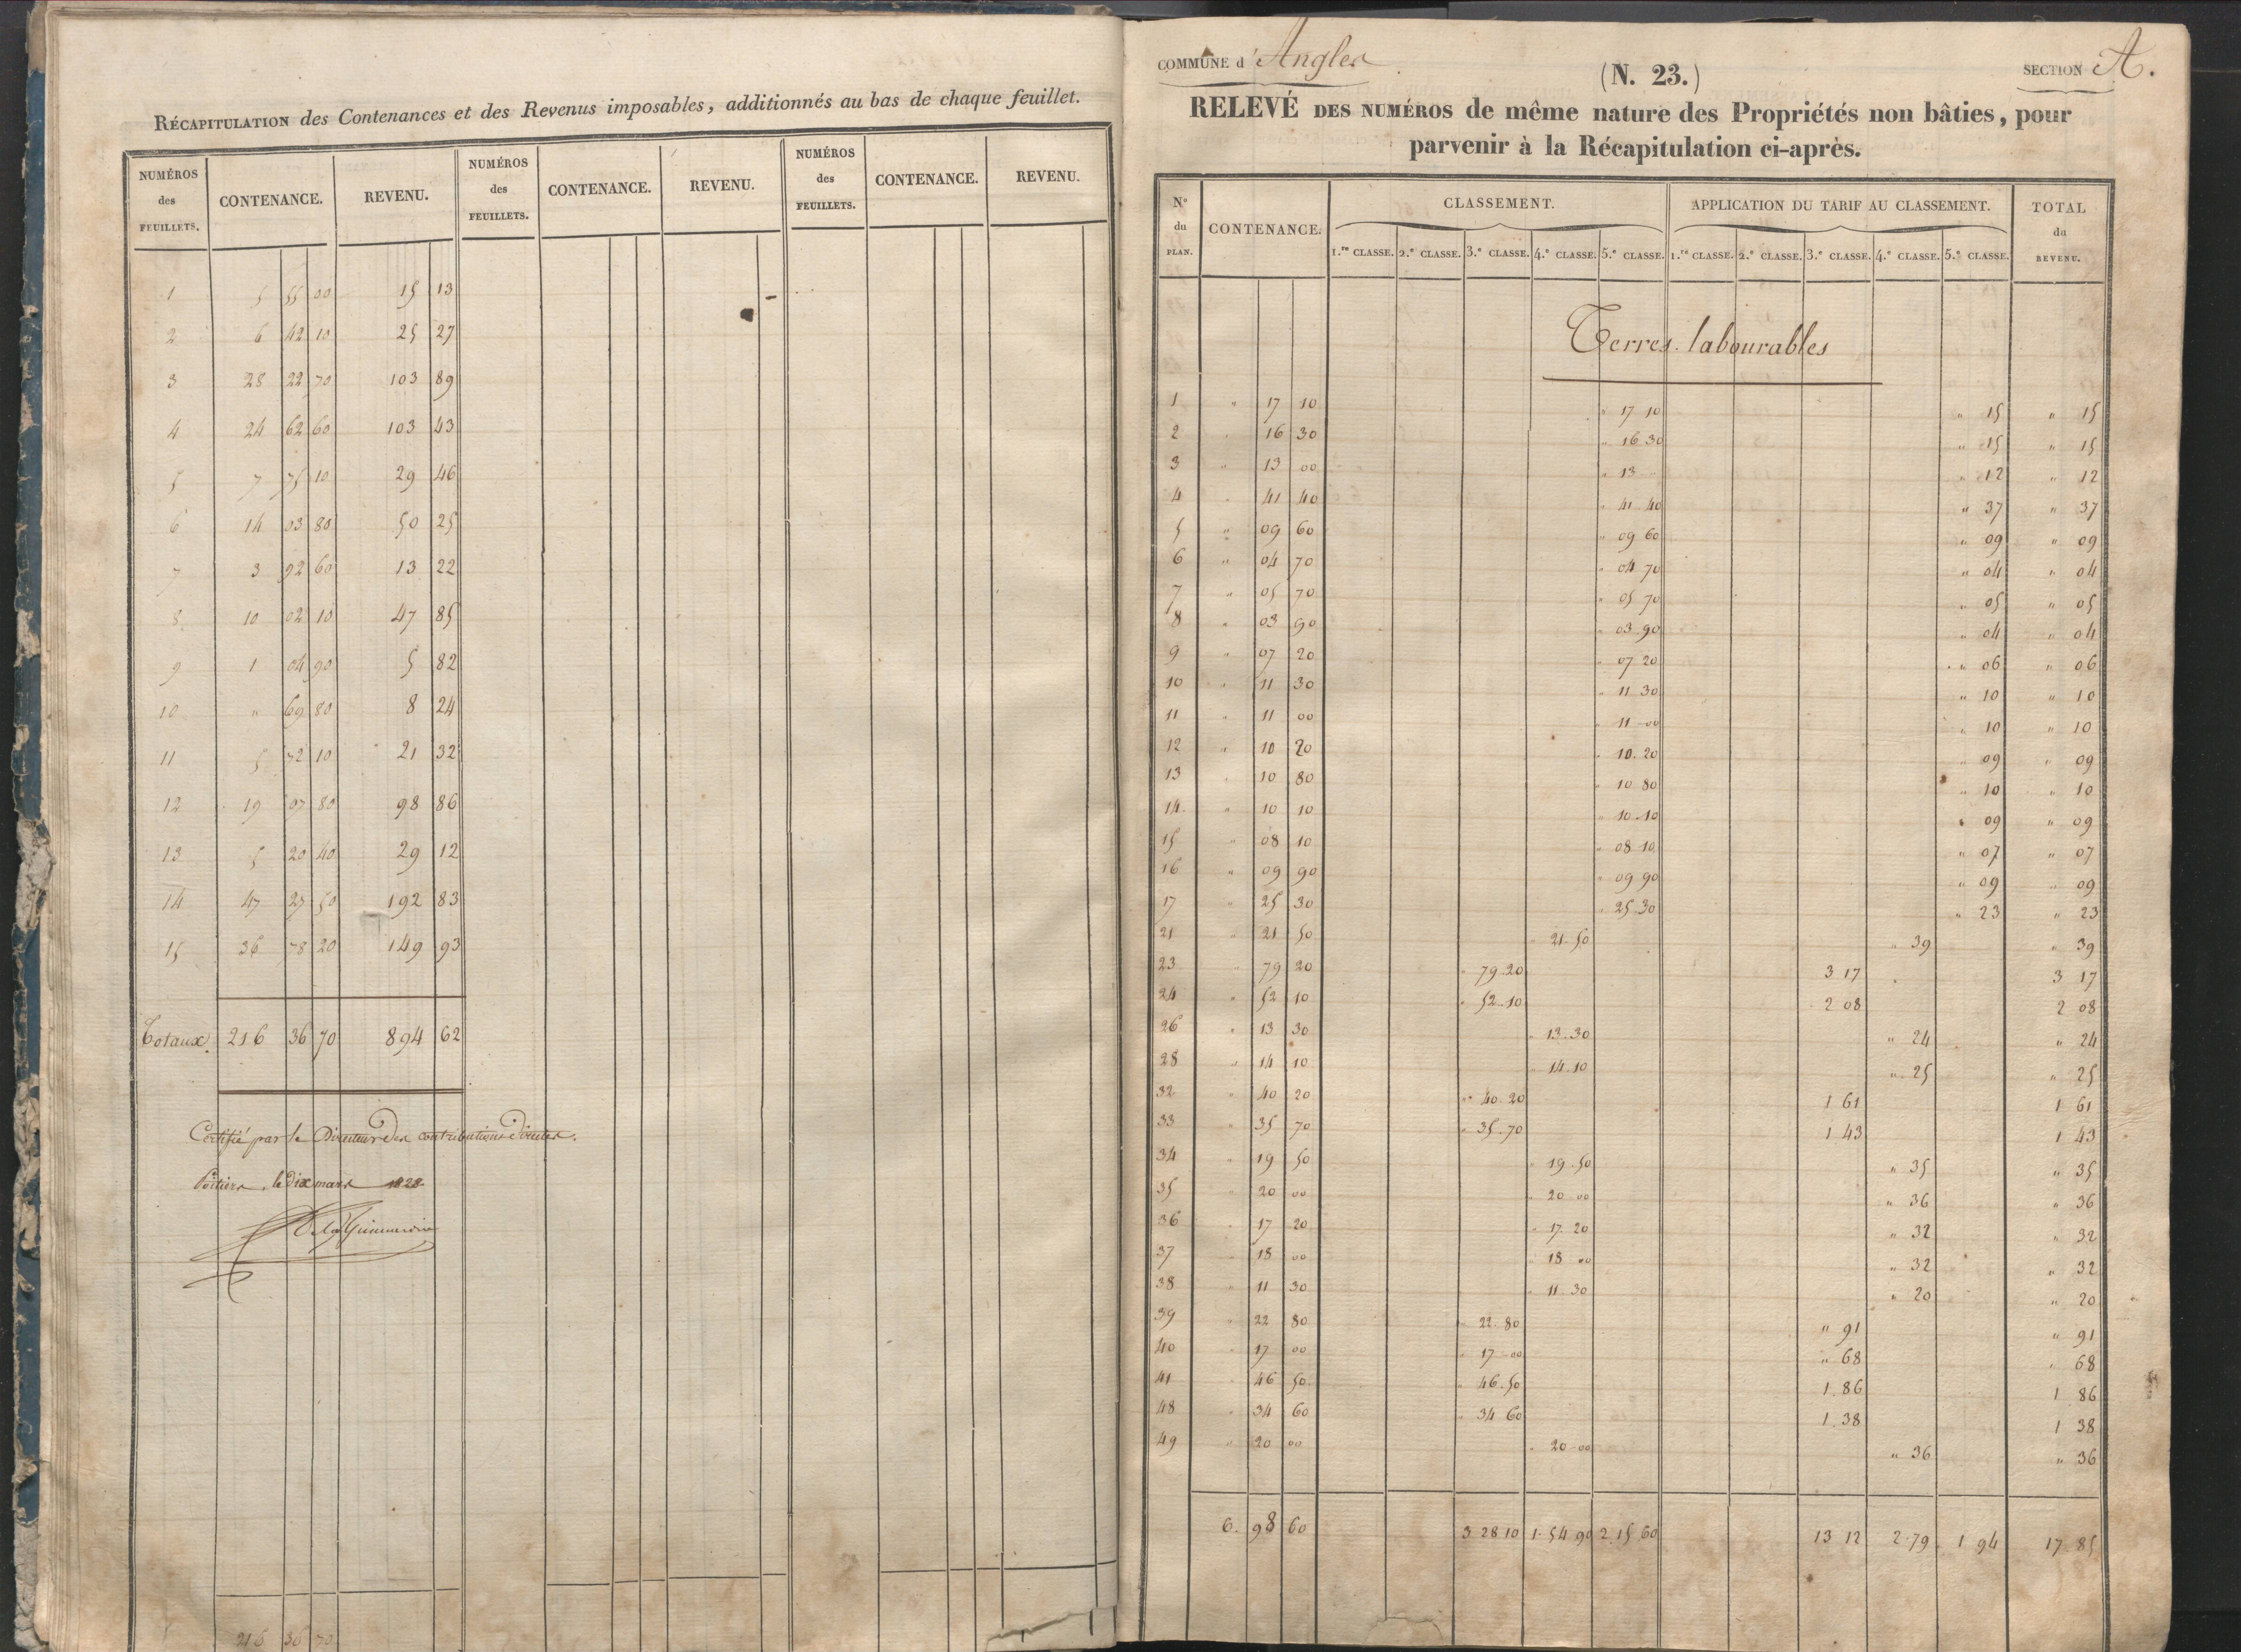 RÉCAPITULATION des Contenances et des Revenus imposables, additionnés au bas de chaque feuillet.
NUMÉROS des FEUILLETS. CONTENANCE. REVENU. NUMÉROS des FEUILLETS. CONTENANCE. REVENU. NUMÉROS des FEUILLETS. CONTENANCE. REVENU.
1 5 55 00 15 13
2 6 42 10 25 27
3 28 22 70 103 89
4 24 62 60 103 43
5 7 75 10 29 46
6 14 03 80 50 25
7 3 92 60 13 22
8 10 02 10 47 85
9 1 04 90 5 82
10 " 69 80 8 24
11 5 72 10 21 32
12 19 07 80 98 86
13 5 20 40 29 12
14 47 27 50 192 83
15 36 78 20 149 93
Totaux. 216 36 70 894 62
Certifié par le Directeur des contributions directes.
Poitiers, le Dix mars 1828
216 36 70
COMMUNE d'Angles
(N. 23.)
SECTION A.
RELEVÉ DES NUMÉROS de même nature des Propriétés non bâties, pour
parvenir à la Récapitulation ci-après.
N.° du PLAN. CONTENANCE. CLASSEMENT. APPLICATION DU TARIF AU CLASSEMENT. TOTAL du REVENU.
1.re CLASSE. 2.e CLASSE. 3.e CLASSE. 4.e CLASSE. 5.e CLASSE. 1.re CLASSE. 2.e CLASSE. 3.e CLASSE. 4.e CLASSE. 5.e CLASSE.
Terres labourables
1 " 17 10 " 17 10 " 15 " 15
2 " 16 30 " 16 30 " 15 " 15
3 " 13 00 " 13 " " 12 " 12
4 " 41 40 " 41 40 " 37 " 37
5 " 09 60 " 09 60 " 09 " 09
6 " 04 70 " 04 70 " 04 " 04
7 " 05 70 " 05 70 " 05 " 05
8 " 03 90 " 03 90 " 04 " 04
9 " 07 20 " 07 20 " 06 " 06
10 " 11 30 " 11 30 " 10 " 10
11 " 11 00 " 11 00 " 10 " 10
12 " 10 20 " 10 20 " 09 " 09
13 " 10 80 " 10 80 " 10 " 10
14 " 10 10 " 10 10 " 09 " 09
15 " 08 10 " 08 10 " 07 " 07
16 " 09 90 " 09 90 " 09 " 09
17 " 25 30 " 25 30 " 23 " 23
21 " 21 50 " 21 50 " 39 " 39
23 " 79 20 " 79 20 3 17 3 17
24 " 52 10 " 52 10 2 08 2 08
26 " 13 30 " 13 30 " 24 " 24
28 " 14 10 " 14 10 " 25 " 25
32 " 40 20 " 40 20 1 61 1 61
33 " 35 70 " 35 70 1 43 1 43
34 " 19 50 " 19 50 " 35 " 35
35 " 20 00 " 20 00 " 36 " 36
36 " 17 20 " 17 20 " 32 " 32
37 " 18 00 " 18 00 " 32 " 32
38 " 11 30 " 11 30 " 20 " 20
39 " 22 80 " 22 80 " 91 " 91
40 " 17 00 " 17 00 " 68 " 68
41 " 46 50 " 46 50 1 86 1 86
48 " 34 60 " 34 60 1 38 1 38
49 " 20 00 " 20 00 " 36 " 36
6 98 60 3 28 10 1 54 90 2 15 60 13 12 2 79 1 94 17 85